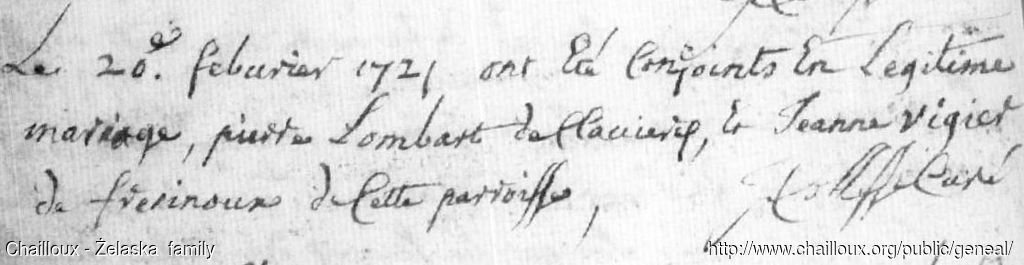 Le 20.e feburier 1721 ont Eté Conjoints En Legitime
mariage, pierre Lombart de Clavieres, & Jeanne vigier
de fresinoux de Cette parroisse,
Curé
Chailloux - Żelaska family
http://www.chailloux.org/public/geneal/